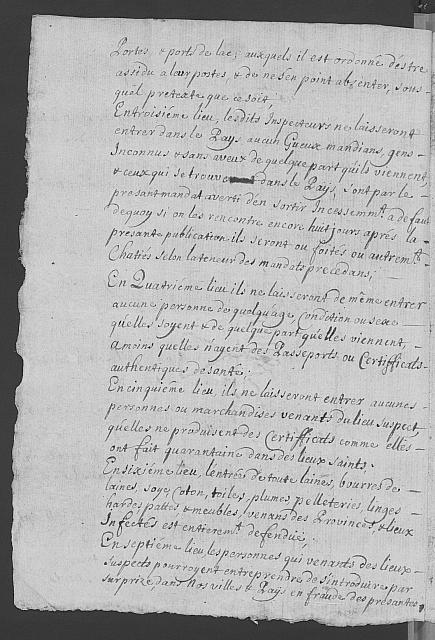 Portes, & ports de lac; auxquels il est ordonné déstre
assidu a leur postes, & de nésén point absenter, sous
quél pretexte que ce soit,
Entroisiéme lieu, lesdits Inspecteurs ne laisseront
entrer dans le Pays aucun Gueux mandians, gens
Inconnus & sans aveux de quelque part qu'ils viennent,
& ceux qui se trouve dans le Pays, sont par le
présant mandat averti d'en sortir Incessemmt. a défaut
dequoy si on les rencontre encore huit jours aprés la
présante publication ils seront ou foités ou autremt.
Chatiés selon la teneur des mandats précedans;
En Quatriéme lieu ils ne laisseront de même entrer
aucune personne de quelqu'age, Condition ou sexe
qu'elles soyent & de quelque part qu'elles viennent,
amoins quelles n'ayent des Passeports ou Certifficats
authentiques de santé.
En cinquiéme lieu, ils ne laisseront entrer aucunes
personnes ou marchandises venants du lieu suspect,
qu'elles ne produisent des Certifficats comme elles
ont fait quarantaine dans des lieux saints.
En sixiéme lieu, l'entrée de toute laines, bourres de
laines, soye, Coton, toiles, plumes, pelleteries, linges
hardes pattes, & meubles, venans des Provinces, & lieux
Infectés est entieremt. deffendüe,
En septiéme lieu, les personnes qui venants des lieux
suspects pourroyent entreprendre de s'introduire par
surprize, dans Nos villes & Pays en fraude des présantes,